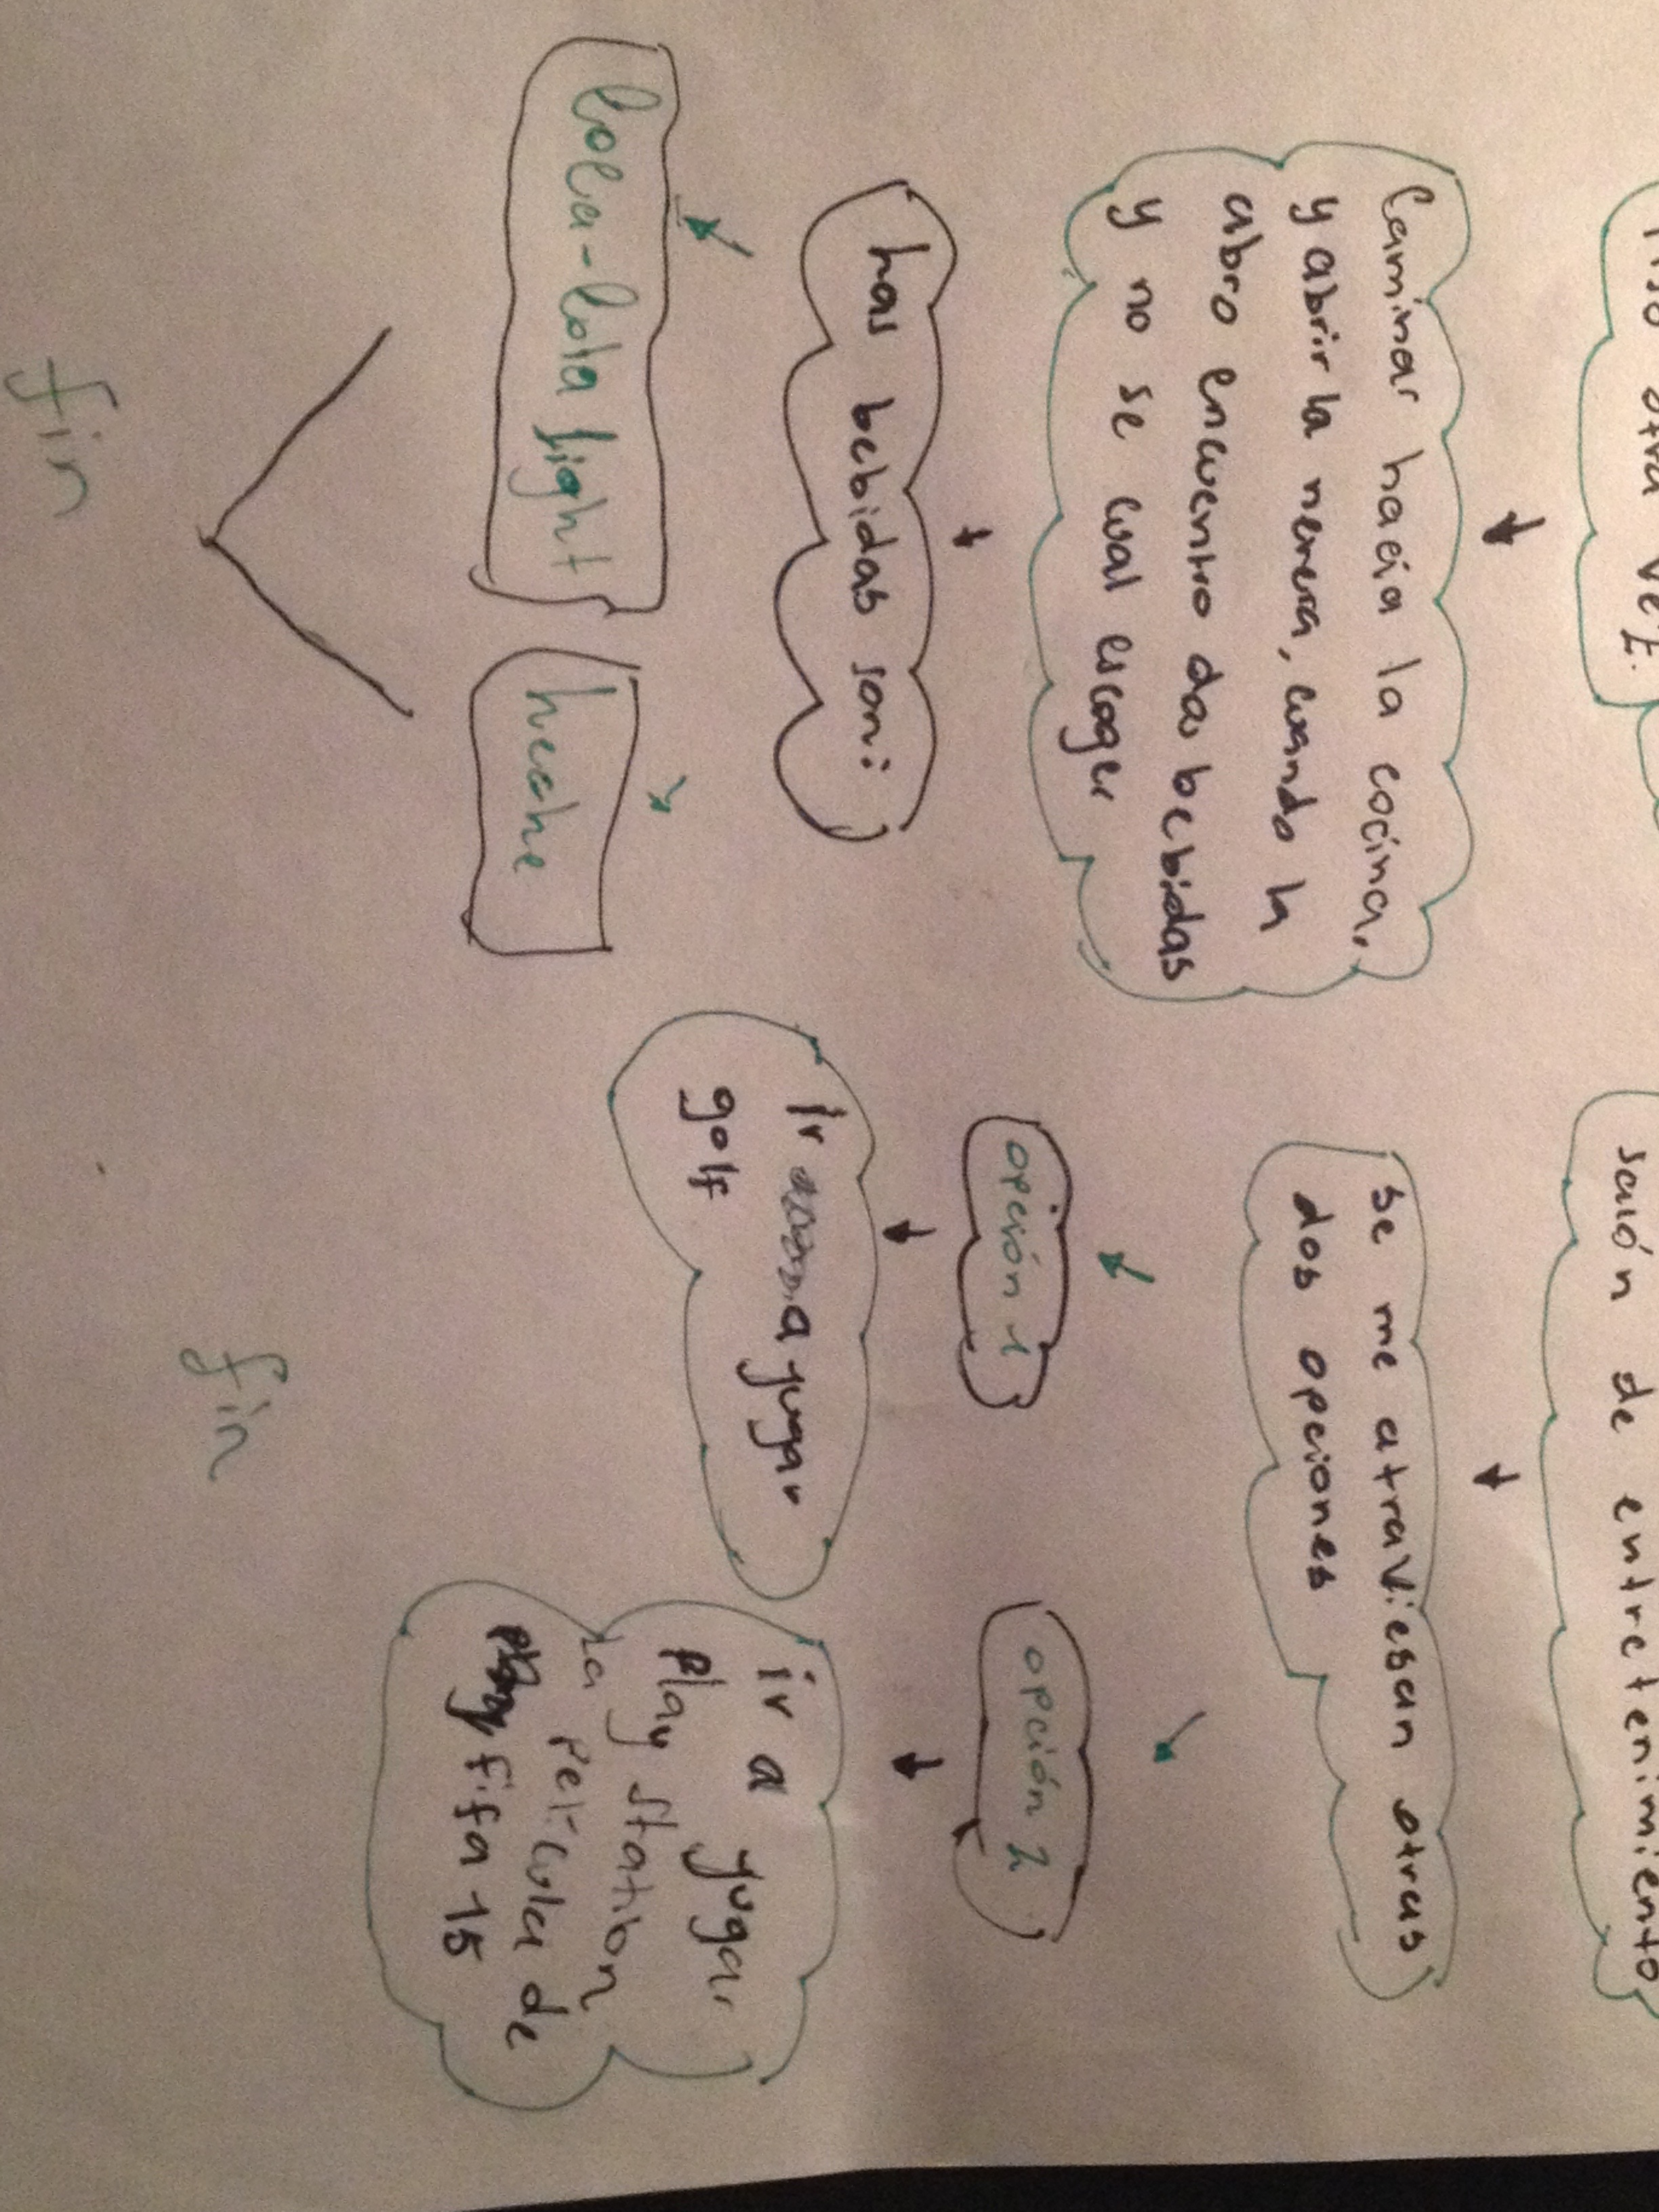 otra vez.
Caminar hacia la cocina,
y abrir la nevera, cuando la
abro encuentro dos bebidas
y no se cual escoger
las bebidas son:
Coca-Cola light
Leche
fin
sación de entretenimiento
se me atraviesan otras
dos opciones
opción 1
opción 2
ir a jugar
golf
ir a jugar
Play station
La película de
Play fifa 15
fin